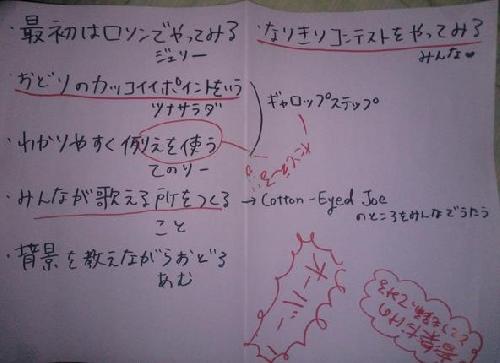 ・最初はロソンでやってみる
ジェリー
おどりのカッコイイポイントをいう
ツナサラダ
・わかりやすく例えを使う
てのりー
・みんなが歌える所をつくる
こと
・背景を教えながらおどる
あむ
・なりきりコンテストをやってみる
みんな♥
ギャロップステップ
→ Cotton-Eyed Joe
のところをみんなでうたう
オーバー